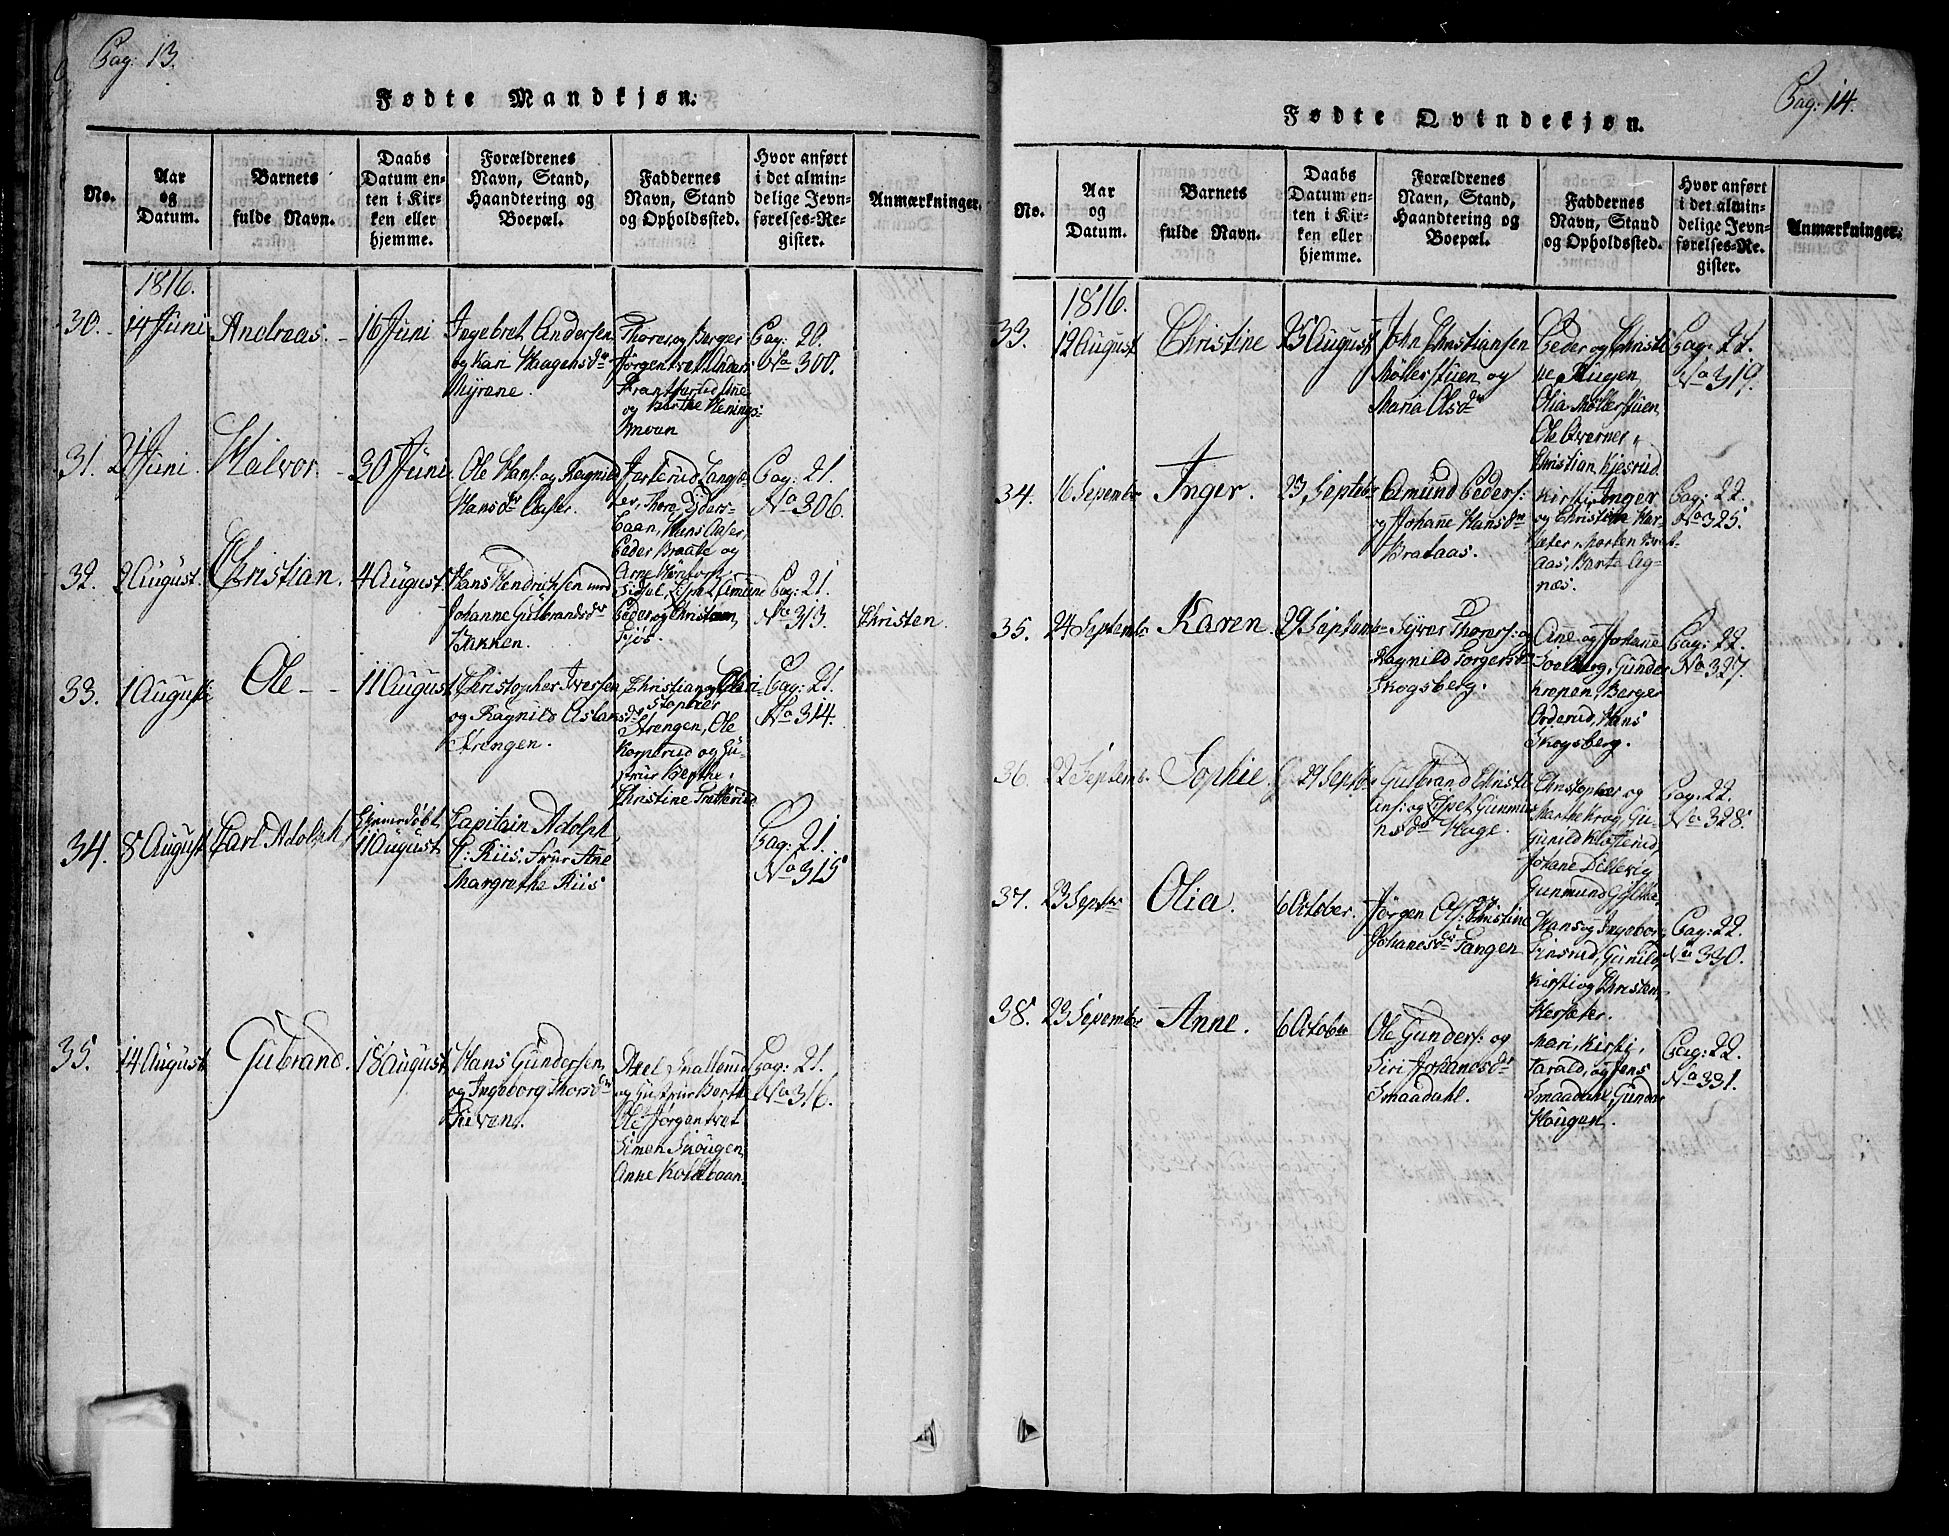 Pag: 13.
Fødte Mandkjøn.
No.
Aar
og
Datum.
Barnets
fulde Navn.
Daabs
Datum en-
ten i Kir-
ken eller
hjemme.
Forældrenes
Navn, Stand,
Haandtering og
Boepæl.
Faddernes
Navn, Stand
og Opholdssted.
Hvor anført
i det almin-
delige Jevn-
førelses-Re-
gister.
Anmærkninger.
1816.
30.
14 Juni
Andreas.
16 Juni
Ingebret Andersen
og Kari
Myrene.
Thorer og Berger
Jørgentvet
og Barthe
Pag: 20.
No 300.
31.
21 Juni.
Halvor.
30 Juni
Ole Hans: og Ragnild
Hansdr Aaser.
Thore
Hans Aaser,
Peder Braate og
Pag: 21.
No 306.
32.
2 August.
Christian.
4 August
Hans Hendrichsen med
Johanne Gulbrandsdr
Bakken.
Peder og
Pag: 21.
No 313.
Christen.
33.
1 August
Ole
11 August
Christopher Iversen
og Ragnild Aslansdr
Strengen.
Christian og
Strengen, Ole
Kornerud og Gu-
strur Berthe,
Christine
Pag: 21.
No 314.
34.
8 August
Carl Adolph
Hjemmedøbt
11 August
Capitain Adolph
Riis. Frur Ane
Margrethe Riis
Pag: 21.
No 315
35.
14 August
Gulbrand.
18 August
Hans Gundersen
og Ingeborg Thorsdr
Axel
og Gustrur Berthe
Ole Jørgentvet
Simen
Anne
Pag: 21.
No 316.
Pag: 14.
Fødte Qvindekjøn.
No.
Aar
og
Datum.
Barnets
fulde Navn.
Daabs
Datum en-
ten i Kir-
ken eller
hjemme.
Forældrenes
Navn, Stand,
Haandtering og
Boepæl.
Faddernes
Navn, Stand
og Opholdssted.
Hvor anført
i det almin-
delige Jevn-
førelses-Re-
gister.
Anmærkninger.
1816.
33.
12 August
Christine
25 August
John Christiansen
Møllerstuen og
Maria Olsdr
Peder og Christi
ne Haugen,
Olia Møllerstuen,
Ole
Christian Kjesrud.
Pag: 21.
No 319.
34.
16 Septembr
Inger.
23 Septebr
Amund Peders:
og Johanne Hansdr
Brataas.
Kirsti, Inger
og Christine Kar-
sæter, Morten Brat-
aas, Barte Ag-
næs.
Pag: 22.
No 325.
35.
24 Septembr
Karen.
29 Septembr
Syver Thorers: og
Ragnild Torgersdr
Skogsberg.
Ane og Johanne
Soelberg, Gunder
Krepen, Berger
Orderud, Hans
Skogsberg.
Pag: 22.
No 327.
36.
22 Septembr
Sophie.
29 Septbr
Gulbrand Christi
ans: og Lispet Gunmu
nsdr Hage.
Christopher og
Marthe Krog, Gu-
Gunild
Johane Dillevig
Gunmund
Pag: 22.
No 328.
37.
23 Septbr
Olia.
6 October.
Jørgen Ols: Christine
Johanesdr Tangen
Hans og Ingebor
Linsrud, Gunild,
Kirsti og Christen,
Kersæter.
Pag: 22.
No 330.
38.
23 Sepembr
Anne.
6 October
Ole Gunders: og
Siri Johanesdr
Smaadahl.
Mari, Kirsti,
Tarald, og Jens
Smaadahl, Gunder
Hougen.
Pag: 22.
No 331.